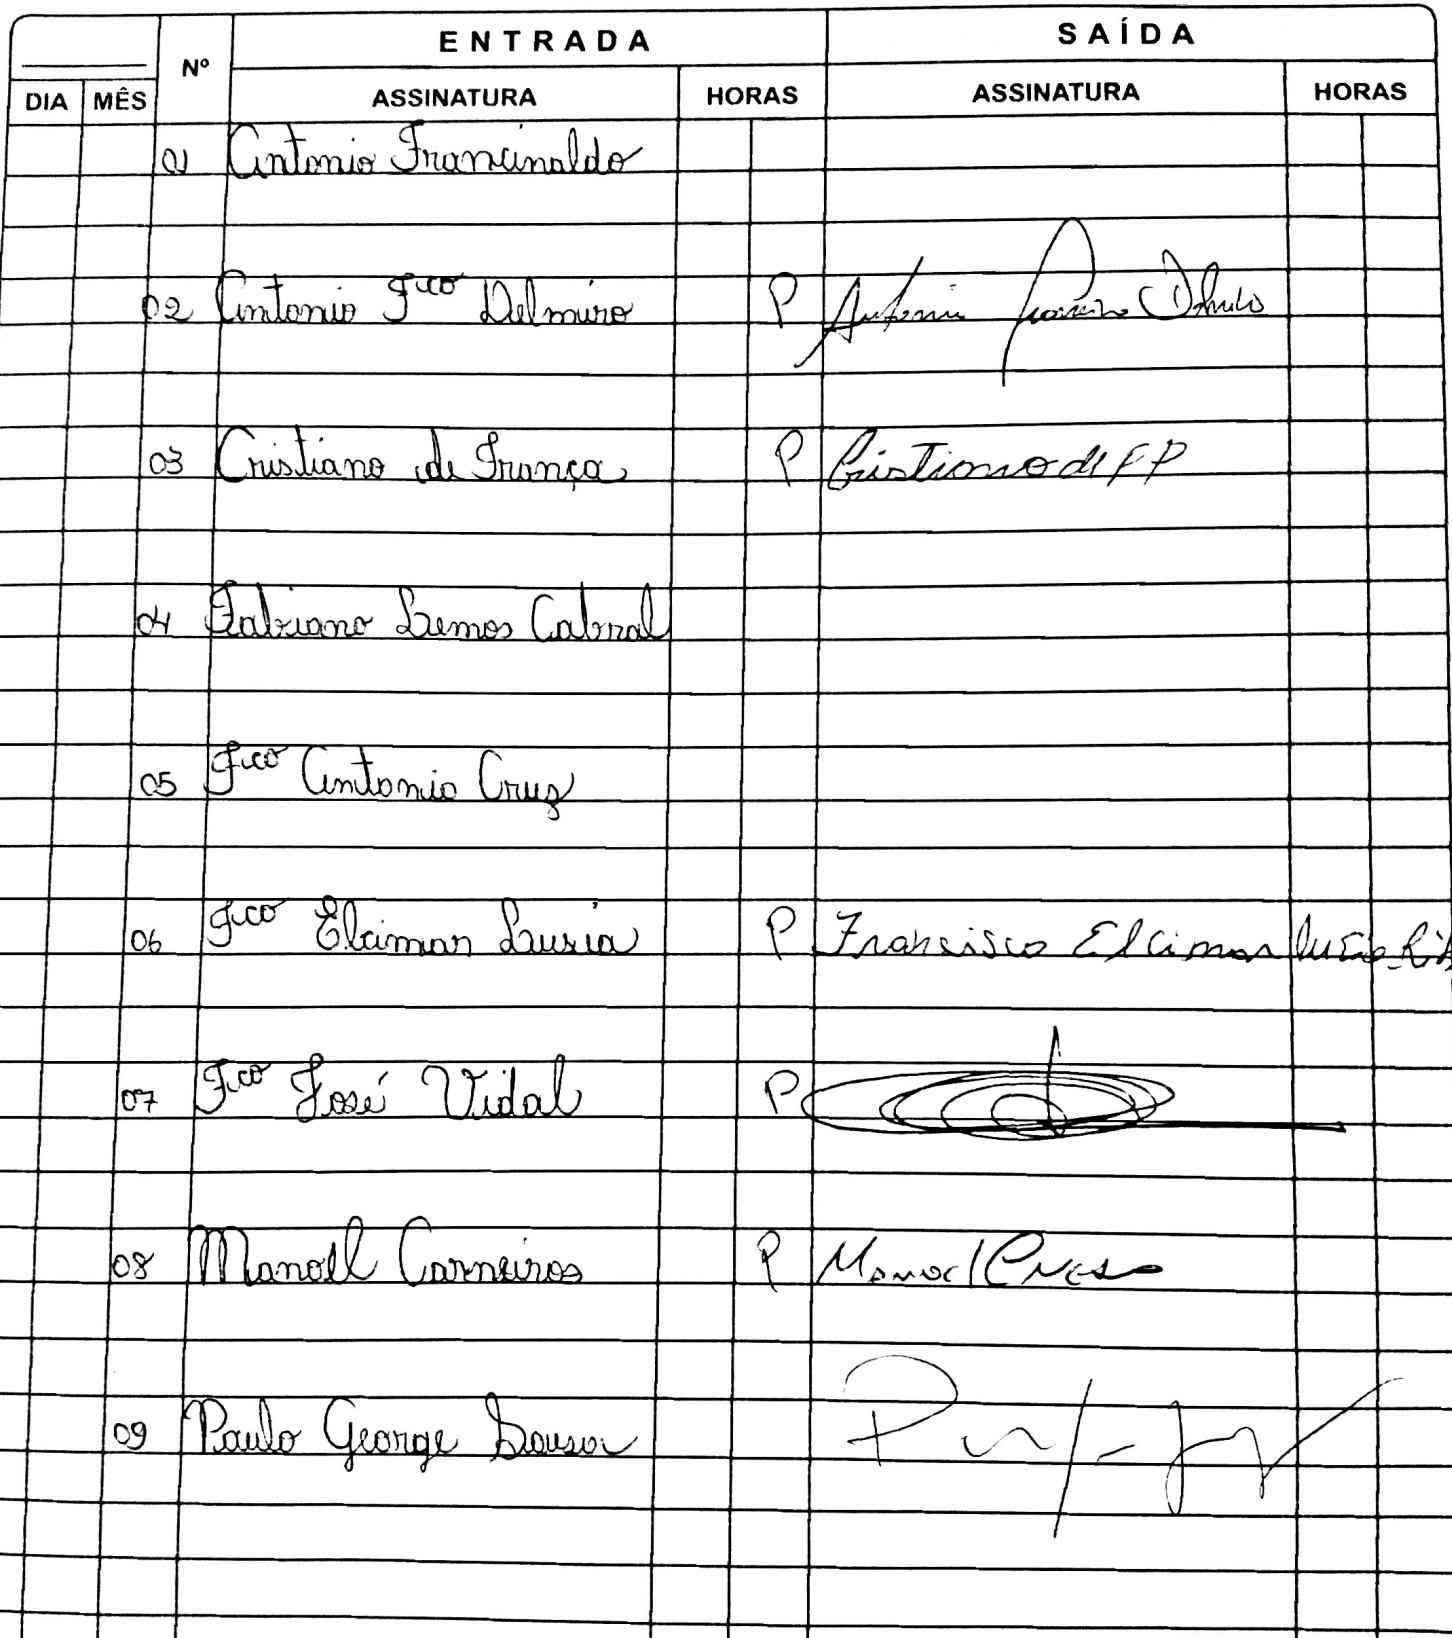 ENTRADA SAÍDA
Nº
DIA MÊS ASSINATURA HORAS ASSINATURA HORAS
01 Antonio Francinaldo
02 Antonio Fco Delmiro P Antonio
03 Cristiano de França P Cristiano de F P
04 Fabiano Lemos Cabral
05 Fco Antonio Cruz
06 Fco Elcimar Lusia P Francisco Elcimar
07 Fco José Vidal P
08 Manoel Carneiros P Manoel
09 Paulo George Sousa